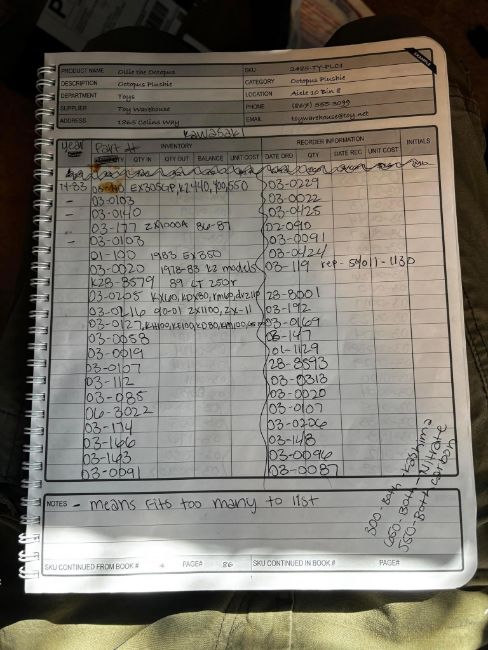 EXAMPLE
PRODUCT NAME Ollie the Octopus SKU 2485-TY-PL01
DESCRIPTION Octopus Plushie CATEGORY Octopus Plushie
DEPARTMENT Toys LOCATION Aisle 10 Bin 8
SUPPLIER Toy Warehouse PHONE (867) 555-3099
ADDRESS 1865 Colins Way EMAIL toywarehouse@toy.net
Kawasaki
year Part #
INVENTORY REORDER INFORMATION INITIALS
QTY IN QTY OUT BALANCE UNIT COST DATE ORD QTY DATE REC UNIT COST
EX305GP, KZ440, 400, 550 03-0229
- 03-0103 03-0022
- 03-0140 03-0425
- 03-177 ZX1000A 86-87 02-0910
- 03-0103 03-0091
01-100 1983 EX350 03-0424
03-0020 1978-83 KZ models 03-119 rep- 59011-1130
K28-8579 89 LT 250r
03-0205 KX60, KDX80, 28-8001
03-0216 90-01 ZX1100, ZX-11 03-192
03-0127, KH100, KE100, KD80, KM100 03-0169
03-0058 03-147
03-0019 01-1129
03-0107 28-8593
03-112 03-0313
03-085 03-0020
06-3022 03-0107
03-174 03-0206
03-166 03-148
03-163 03-0096
03-0091 03-0087
300-Both-Kashima
650-Both-Nitrate
JSO-Both Carbon
NOTES - means fits too many to list
SKU CONTINUED FROM BOOK # PAGE# 86 SKU CONTINUED IN BOOK # PAGE#